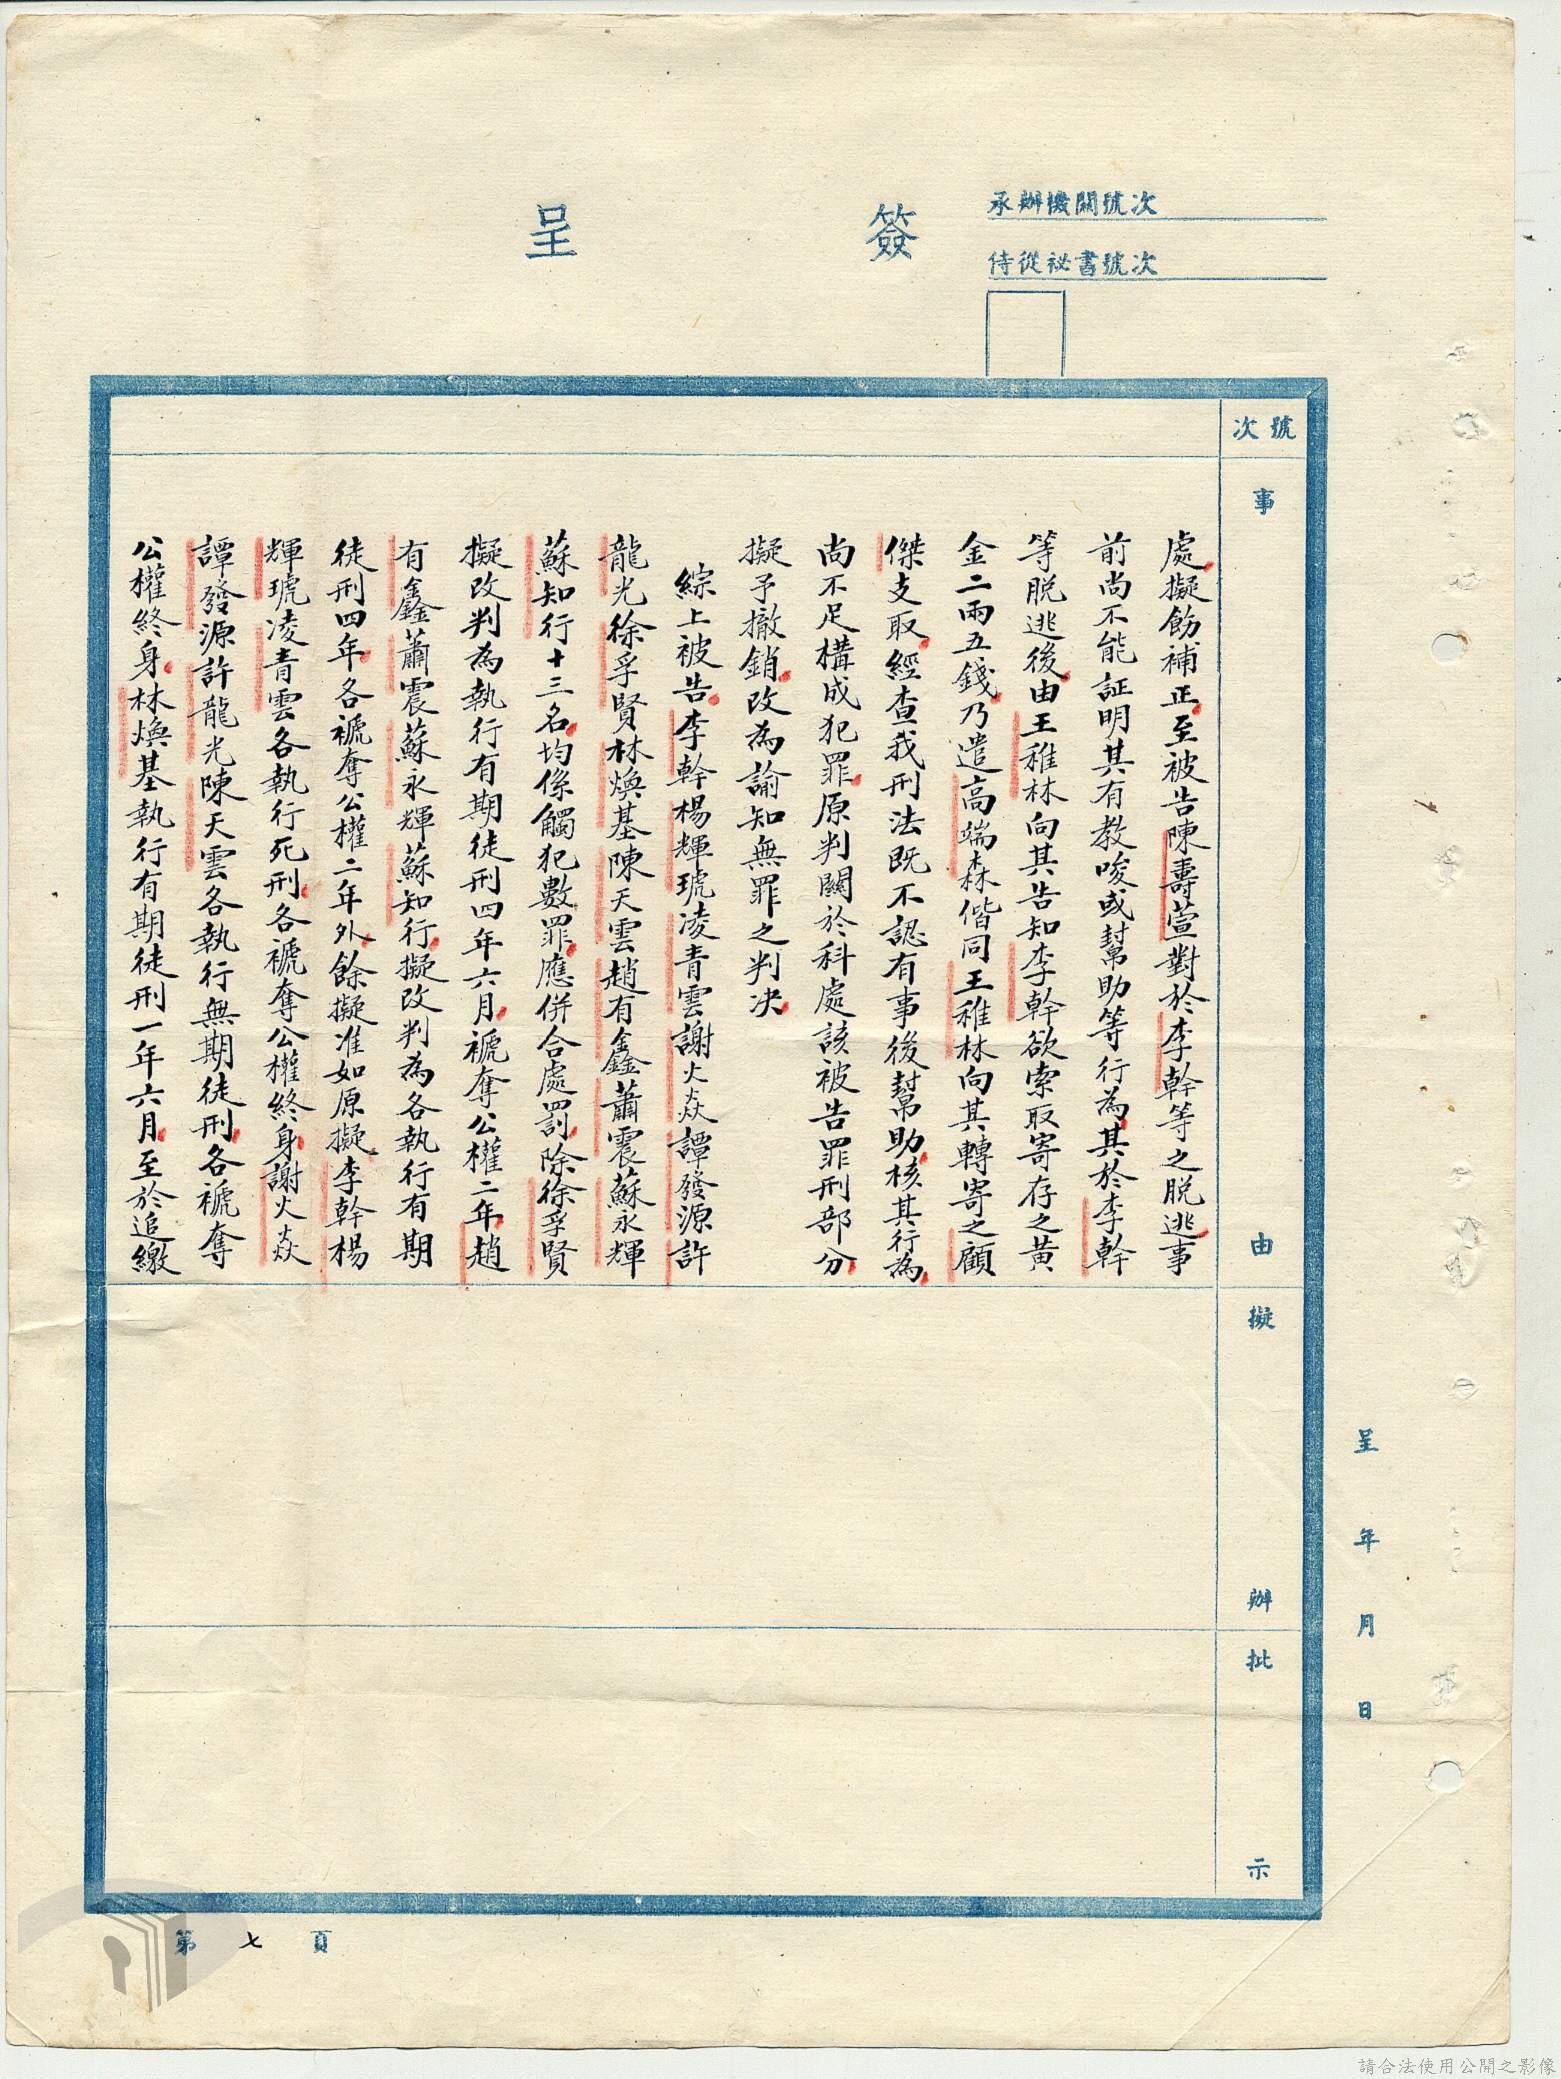 簽呈
承辦機關號次
侍從祕書號次
號次
事由
擬辦
批示
處擬飭補正至被告陳壽萱對於李幹等之脫逃事
前尚不能証明其有教唆或幫助等行為其於李幹
等脫逃後由王稚林向其告知李幹欲索取寄存之黃
金二兩五錢乃遣高端森偕同王稚林向其轉寄之顧
傑支取經查我刑法既不認有事後幫助核其行為
尚不足構成犯罪原判關於科處該被告罪刑部分
擬予撤銷改為諭知無罪之判決
綜上被告李幹楊輝琥凌青雲謝火焱譚發源許
龍光徐孚賢林煥基陳天雲趙有鑫蕭震蘇永輝
蘇知行十三名均係觸犯數罪應併合處罰除徐孚賢
擬改判為執行有期徒刑四年六月褫奪公權二年趙
有鑫蕭震蘇永輝蘇知行擬改判為各執行有期
徒刑四年各褫奪公權二年外餘擬准如原擬李幹楊
輝琥凌青雲各執行死刑各褫奪公權終身謝火焱
譚發源許龍光陳天雲各執行無期徒刑各褫奪
公權終身林煥基執行有期徒刑一年六月至於追繳
呈 年 月 日
第七頁
請合法使用公開之影像